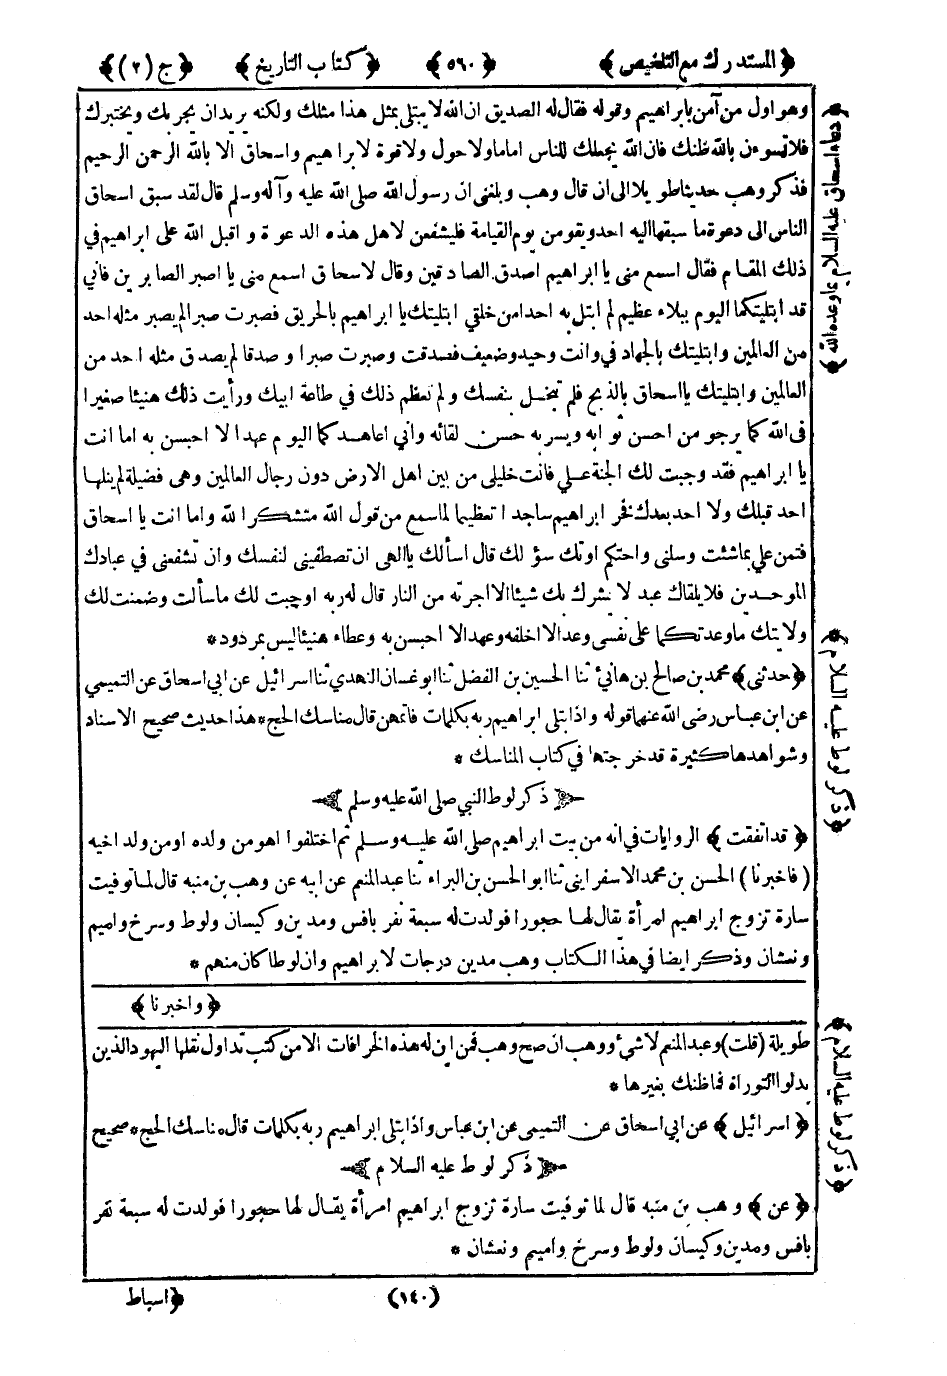 ﴿ المستدرك مع التلخيص ﴾ ﴿ ٥٦٠ ﴾ ﴿ كتاب التاريخ ﴾ ﴿ ج (٢) ﴾
وهو اول من آمن بابراهيم وقوله فقال له الصديق ان الله لا يبتلى بمثل هذا مثلك ولكنه يريد ان يجربك ويختبرك
فلا تسوءن بالله ظنك فان الله يجعلك للناس اماما ولا حول ولا قوة لابراهيم واسحاق الا بالله الرحمن الرحيم
فذكر وهب حديثا طويلا الى ان قال وهب وبلغنى ان رسول الله صلى الله عليه وآله وسلم قال لقد سبق اسحاق
الناس الى دعوة ما سبقها اليه احد ويقومن يوم القيامة فليشفعن لاهل هذه الدعوة و اقبل الله على ابراهيم في
ذلك المقام فقال اسمع منى يا ابراهيم اصدق الصادقين وقال لاسحاق اسمع منى يا اصبر الصابرين فاني
قد ابتليتكما اليوم ببلاء عظيم لم ابتل به احدا من خلقي ابتليتك يا ابراهيم بالحريق فصبرت صبرا لم يصبر مثله احد
من العالمين وابتليتك بالجهاد في وانت وحيد وضعيف فصدقت وصبرت صبرا و صدقا لم يصدق مثله احد من
العالمين وابتليتك يا اسحاق بالذبح فلم تبخل بنفسك ولم تعظم ذلك في طاعة ابيك ورأيت ذلك هنيئا صغيرا
فى الله كما يرجو من احسن ثوابه ويسر به حسن لقائه واني اعاهدكما اليوم عهدا لا احبسن به اما انت
يا ابراهيم فقد وجبت لك الجنة على فانت خليلى من بين اهل الارض دون رجال العالمين وهى فضيلة لم ينلها
احد قبلك ولا احد بعدك فخر ابراهيم ساجدا تعظيما لما سمع من قول الله متشكرا لله واما انت يا اسحاق
فتمن علي بما شئت وسلنى واحتكم اوتك سؤلك قال اسألك يا الهى ان تصطفينى لنفسك وان تشفعنى في عبادك
الموحدين فلا يلقاك عبد لا يشرك بك شيئا الا اجرته من النار قال له ربه اوجبت لك ما سألت وضمنت لك
ولابيك ما وعدتكما على نفسى وعدا لا اخلفه وعهدا لا احبسن به وعطاء هنيئا ليس بمردود *
﴿ حدثنى ﴾ محمد بن صالح بن هانئ ثنا الحسين بن الفضل ثنا ابو غسان النهدي ثنا اسرائيل عن ابي اسحاق عن التميمي
عن ابن عباس رضى الله عنهما قوله واذ ابتلى ابراهيم ربه بكلمات فاتمهن قال مناسك الحج * هذا حديث صحيح الاسناد
وشواهدها كثيرة قد خرجتها في كتاب المناسك *
ذكر لوط النبي صلى الله عليه وسلم
﴿ قد اتفقت ﴾ الروايات في انه من بيت ابراهيم صلى الله عليه وسلم ثم اختلفوا اهو من ولده او من ولد اخيه
( فاخبرنا ) الحسن بن محمد الاسفرايني ثنا ابو الحسن بن البراء ثنا عبد المنعم عن ابيه عن وهب بن منبه قال لما توفيت
سارة تزوج ابراهيم امرأة يقال لها حجورا فولدت له سبعة نفر بافس ومدين وكيسان ولوط وسرخ واميم
ونعشان وذكر ايضا في هذا الكتاب وهب مدين درجات لابراهيم وان لوطا كان منهم *
﴿ واخبرنا ﴾
طويلة (قلت) وعبد المنعم لا شئ ووهب ان صح وهب فمن اين له هذه الخرافات الا من كتب تداول نقلها اليهود الذين
بدلوا التوراة فما ظنك بغيرها *
﴿ اسرائيل ﴾ عن ابي اسحاق عن التميمى عن ابن عباس واذ ابتلى ابراهيم ربه بكلمات قال مناسك الحج * صحيح
ذكر لوط عليه السلام
﴿ عن ﴾ وهب بن منبه قال لما توفيت سارة تزوج ابراهيم امرأة يقال لها حجورا فولدت له سبعة نفر
بافس ومدين وكيسان ولوط وسرخ واميم ونعشان *
(١٤٠) ﴿ اسباط
﴿ دعاء اسحاق عليه السلام بما وعده الله ﴾
﴿ ذكر لوط عليه السلام ﴾
﴿ ذكر لوط عليه السلام ﴾